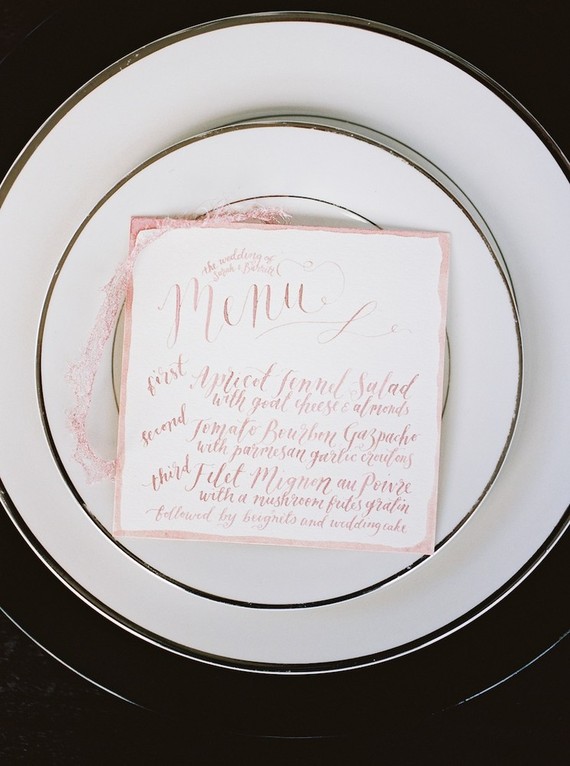 the wedding of
Sarah & Barrett
Menu
first Apricot Fennel Salad
with goat cheese & almonds
second Tomato Bourbon Gazpacho
with parmesan garlic croutons
third Filet Mignon au Poivre
with a mushroom frites gratin
followed by beignets and wedding cake